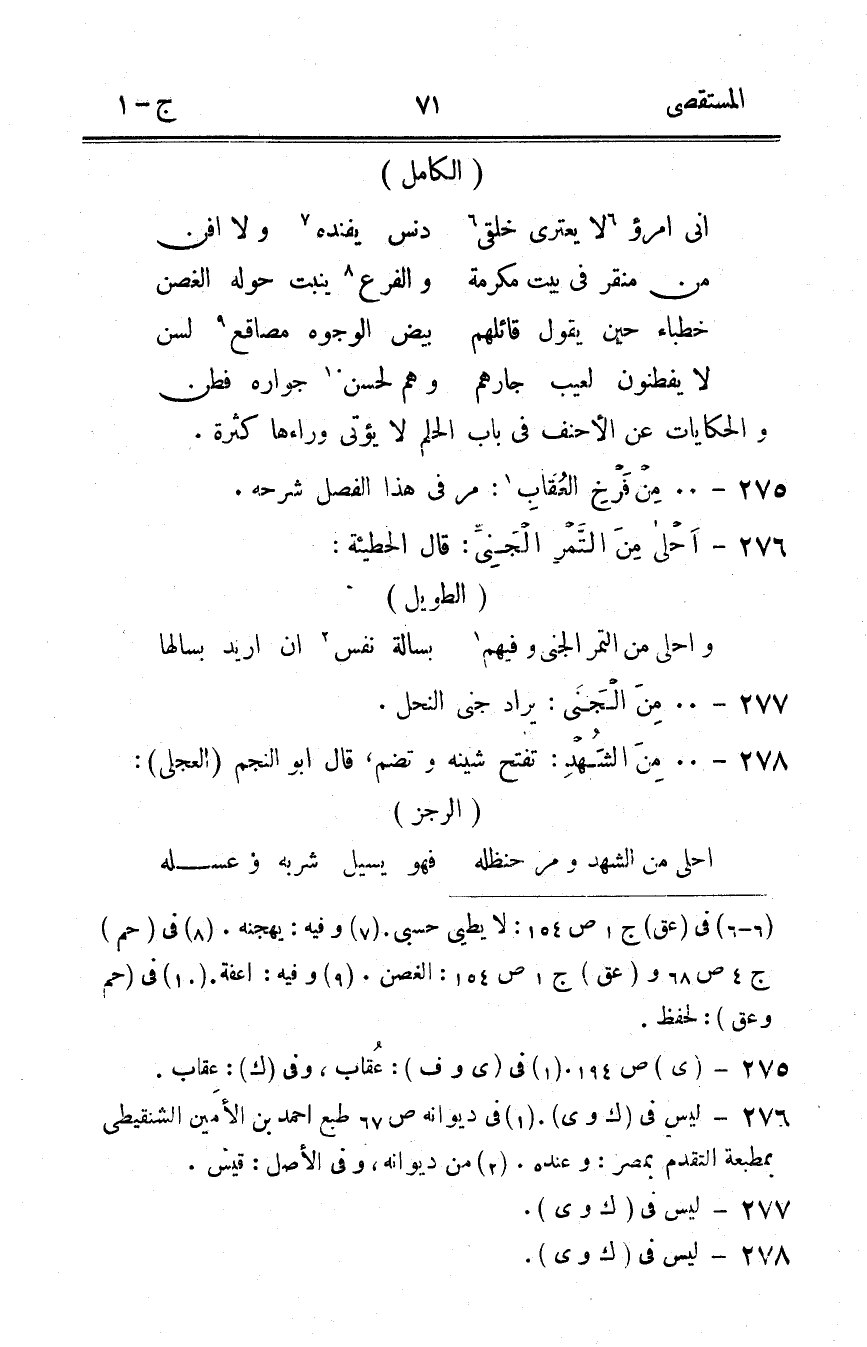 المستقصى ٧١ ج – ١
( الكامل )
انى امرؤ ٦لا يعترى خلقى٦ دنس يفنده٧ و لا افن
من منقر فى بيت مكرمة و الفرع٨ ينبت حوله الغصن
خطباء حين يقول قائلهم بيض الوجوه مصاقع٩ لسن
لا يفطنون لعيب جارهم و هم لحسن١٠ جواره فطن
و الحكايات عن الأحنف فى باب الحلم لا يؤتى وراءها كثرة .
٢٧٥ – ٠٠ مِنْ فَرْخِ العُقَابِ١ : مر فى هذا الفصل شرحه .
٢٧٦ – اَحْلىٰ مِنَ التَّمْرِ الْجَنِىِّ : قال الحطيئة :
( الطويل )
و احلى من التمر الجنى و فيهم١ بسالة نفس٢ ان اريد بسالها
٢٧٧ – ٠٠ مِنَ الْجَنَى : يراد جنى النحل .
٢٧٨ – ٠٠ مِنَ الشَُّهْدِ : تفتح شينه و تضم، قال ابو النجم (العجلى) :
( الرجز )
احلى من الشهد و مر حنظله فهو يسيل شربه و عســـله
(٦-٦) فى (عق) ج ١ ص ١٥٤ : لا يطبي حسبى. (٧) و فيه : يهجنه . (٨) فى ( حم )
ج ٤ ص ٦٨ و ( عق ) ج ١ ص ١٥٤ : الغصن . (٩) و فيه : اعفة. (١٠) فى (حم
وعق ) : لحفظ .
٢٧٥ – ( ى ) ص ١٩٤. (١) فى ( ى و ف ) : عُقاب ، وفى (ك) : عقاب .
٢٧٦ – ليس فى (ك و ى) . (١) فى ديوانه ص ٦٧ طبع احمد بن الأمين الشنقيطى
بمطبعة التقدم بمصر : و عنده . (٢) من ديوانه، و فى الأصل : قيس .
٢٧٧ – ليس فى ( ك و ى ) .
٢٧٨ – ليس فى ( ك و ى ) .